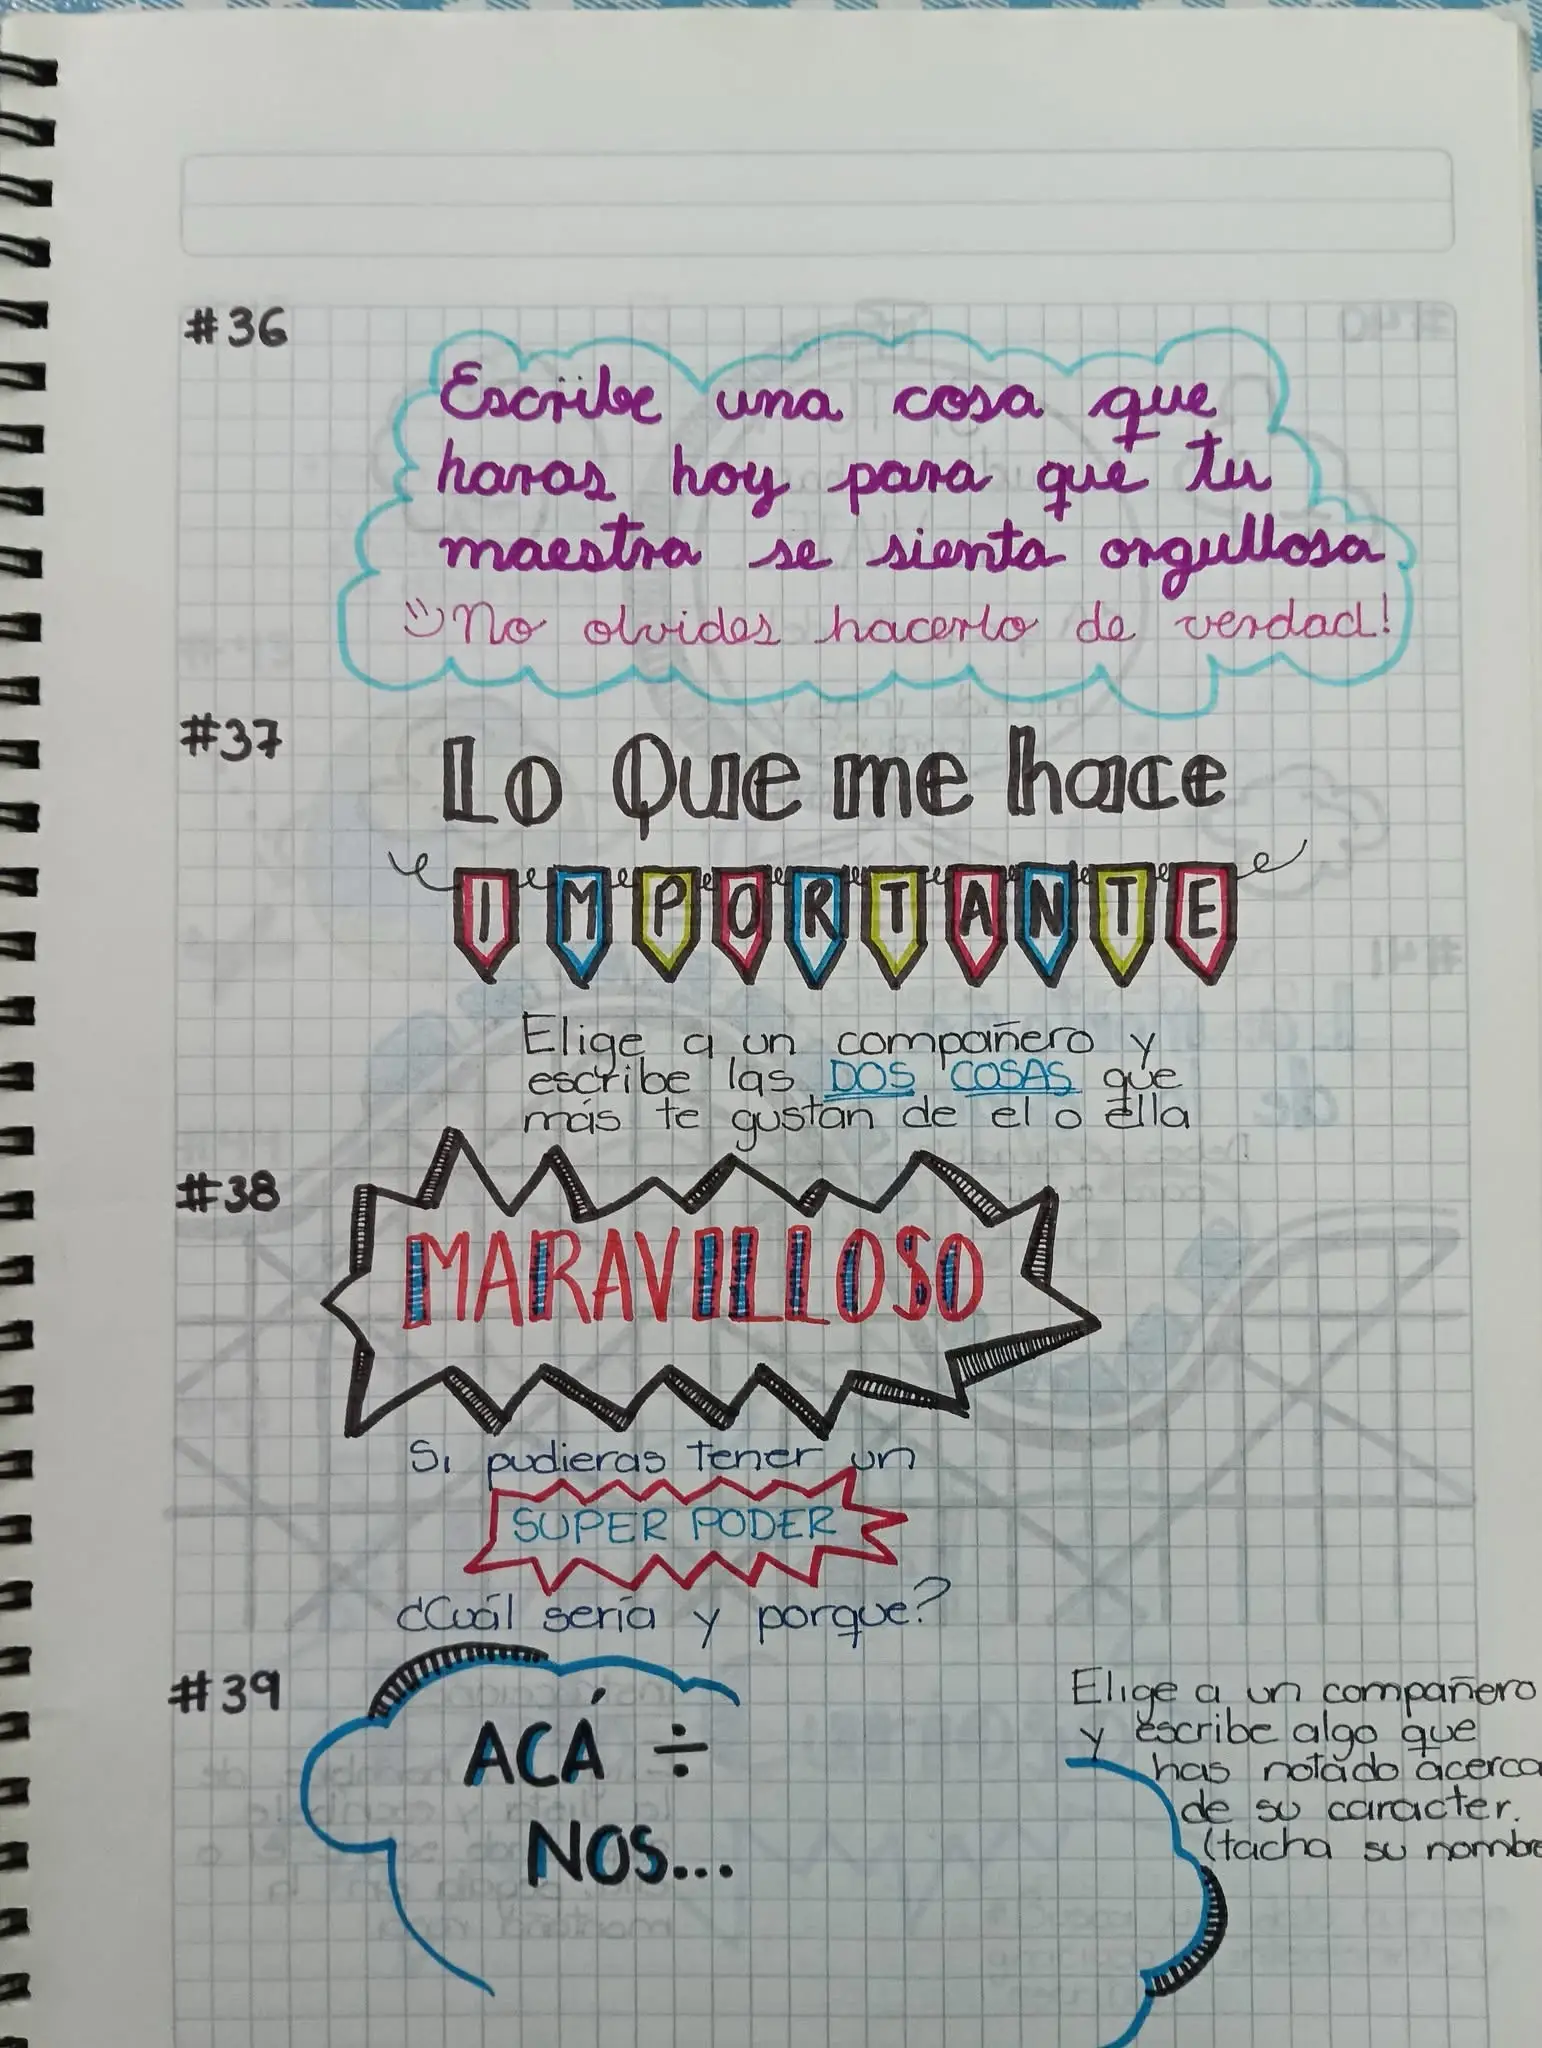 #36
Escribe una cosa que
haras hoy para que tu
maestra se sienta orgullosa
No olvides hacerlo de verdad!
#37
Lo Que me hace
IMPORTANTE
Elige a un compañero y
escribe las DOS COSAS que
más te gustan de el o ella
#38
MARAVILLOSO
Si pudieras tener un
SUPER PODER
¿Cuál sería y porque?
#39
ACÁ ÷
NOS...
Elige a un compañero
y escribe algo que
has notado acerca
de su caracter.
(tacha su nombre